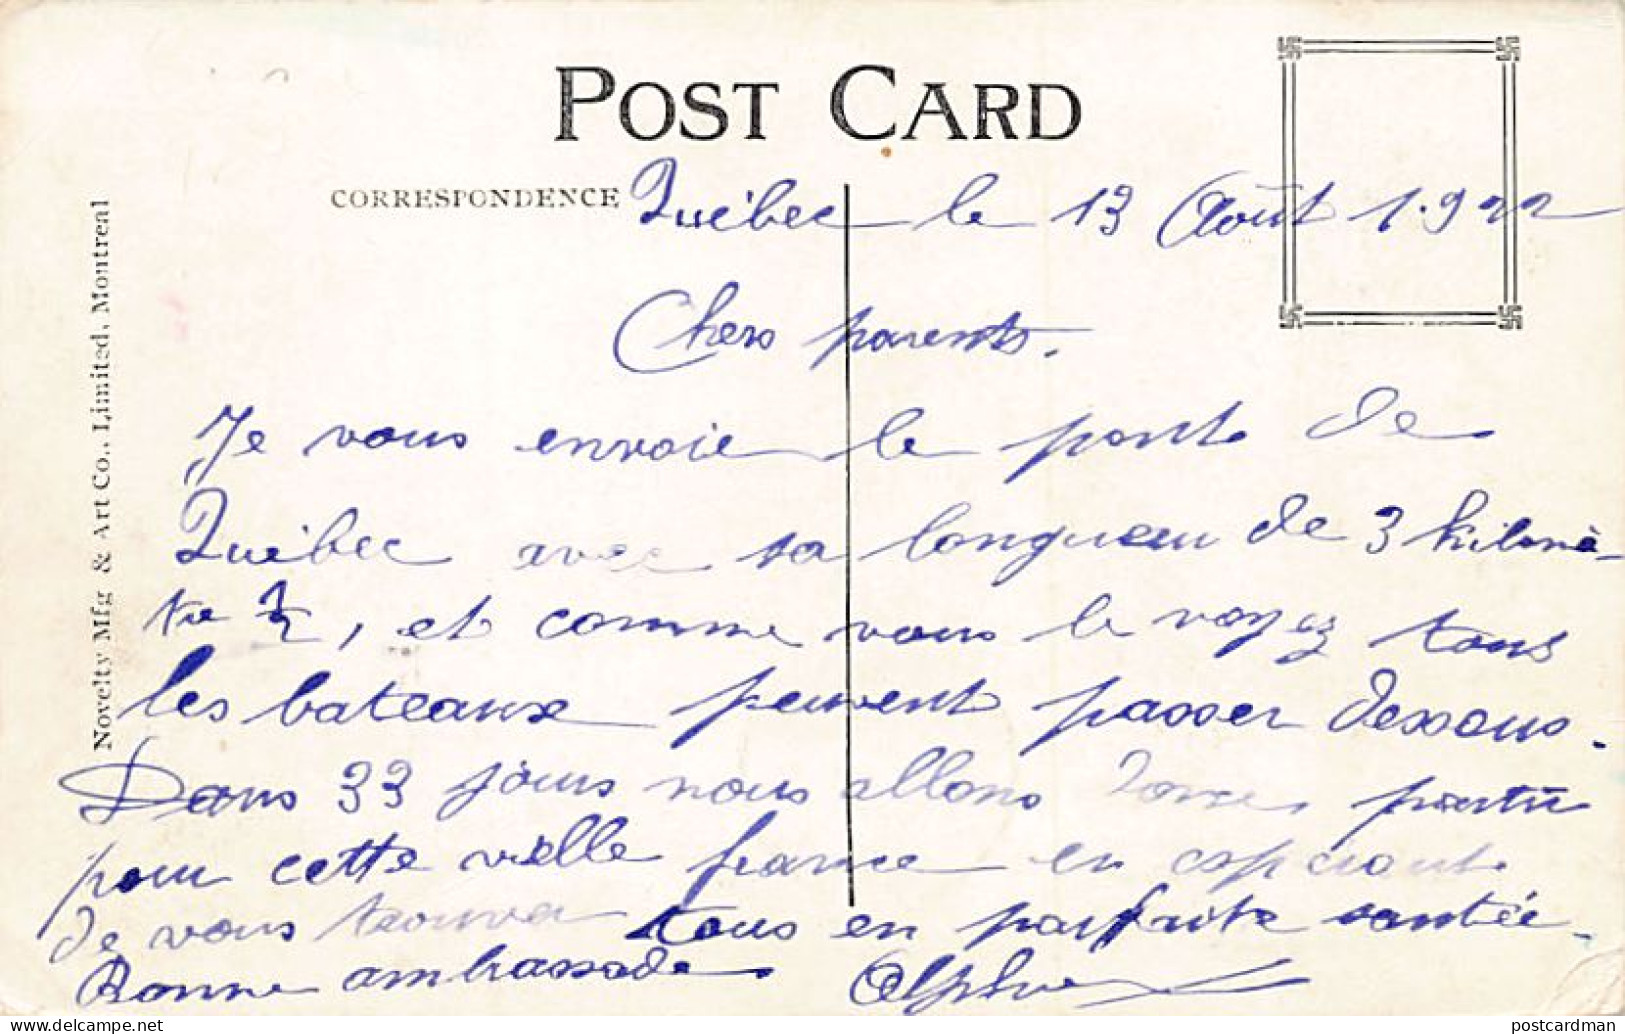 POST CARD
CORRESPONDENCE
Novelty Mfg & Art Co., Limited, Montreal
Québec le 13 Août 1.922
Chers parents.
Je vous envoie le pont de
Québec avec sa longueur de 3 kilomè-
tre ½, et comme vous le voyez tous
les bateaux peuvent passer dessous.
Dans 33 jours nous allons partir
pour cette vielle france en espérant
de vous trouver tous en parfaite santée.
Bonne ambrassade Alphonse
postcardman